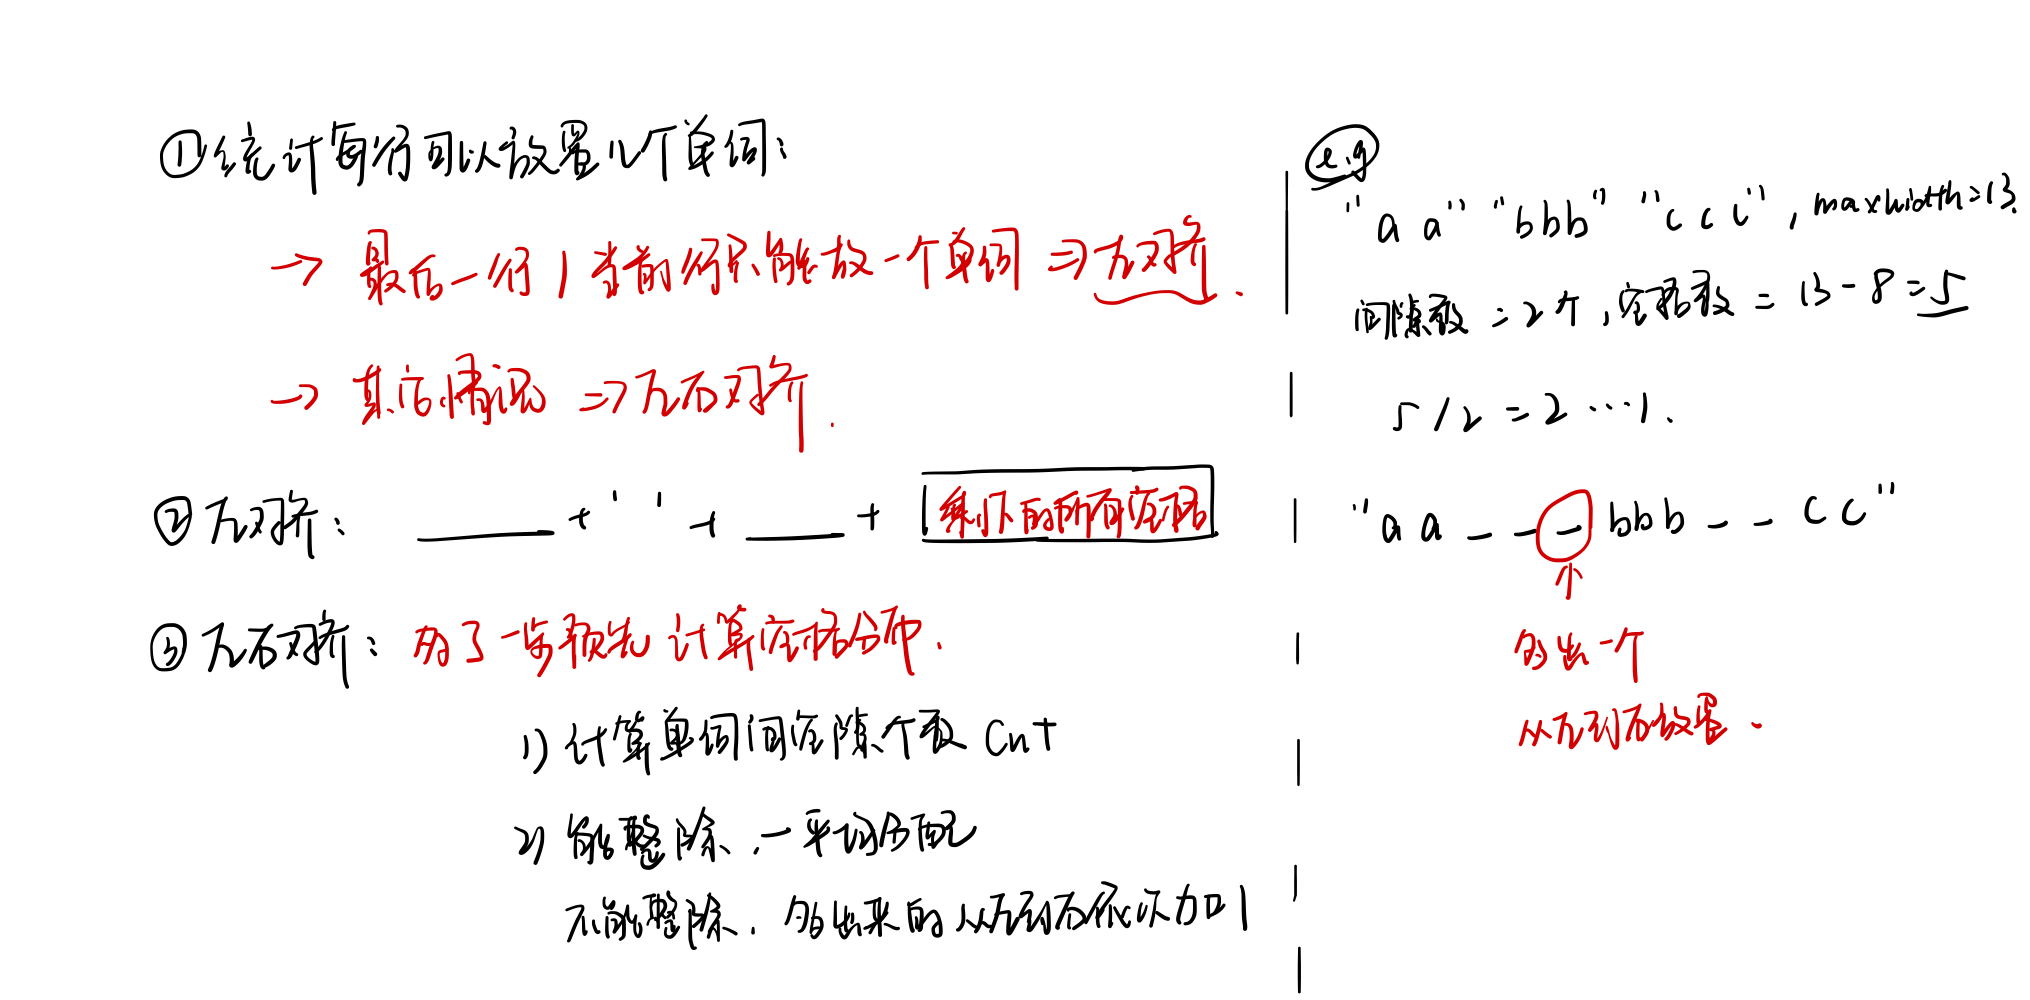 ①统计每行可以放置几个单词：
→ 最后一行 / 当前行只能放一个单词 ⇒ 左对齐.
→ 其它情况 ⇒ 左右对齐.
②左对齐： ___ + ' ' + ___ + 剩下的所有空格
③左右对齐：多了一步预先计算空格分布.
1) 计算单词间空隙个数 cnt
2) 能整除, 一平均分配
不能整除, 多出来的从左到右依次加1
e.g
"aa" "bbb" "ccc", maxwidth=13.
间隙数 = 2个, 空格数 = 13-8=5
5/2=2…1.
"aa _ _ _ bbb _ _ cc"
↑
多出一个
从左到右放置.